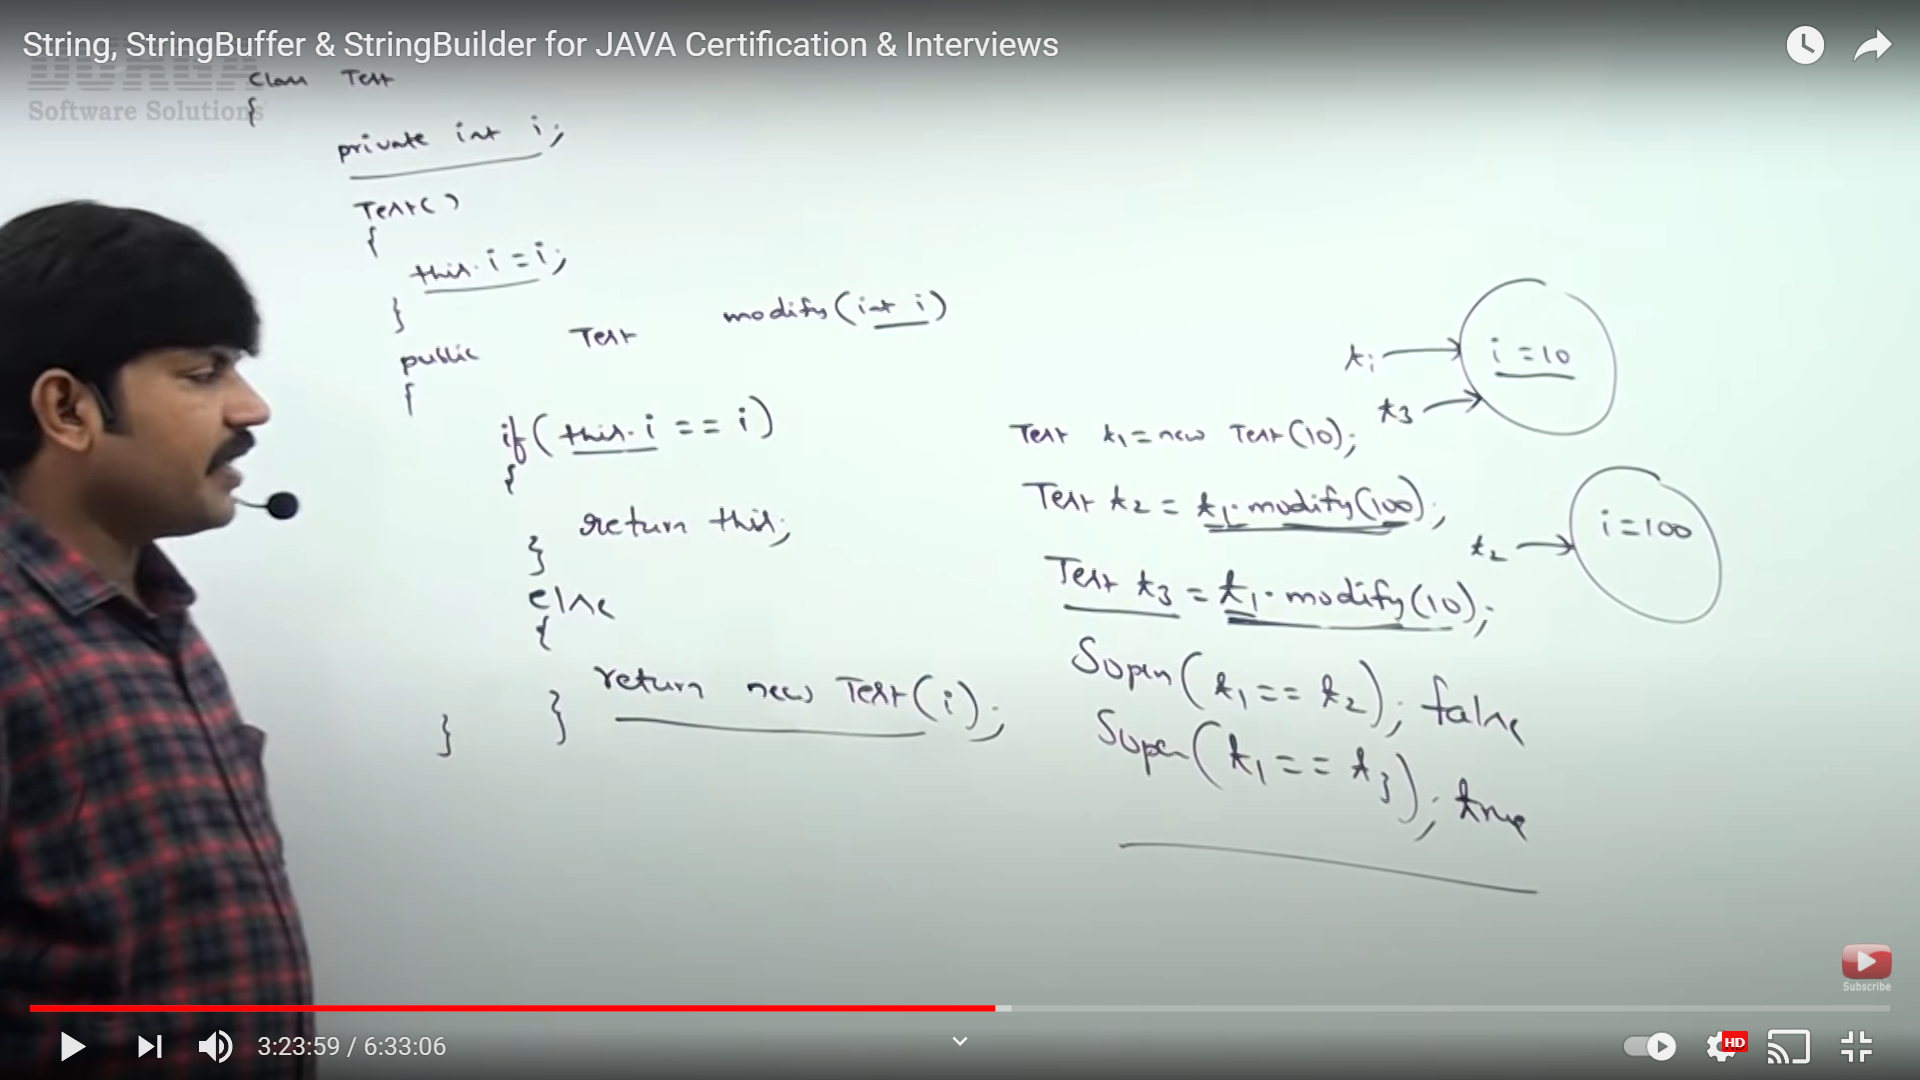 String, StringBuffer & StringBuilder for JAVA Certification & Interviews
DURGA
Software Solutions
class Test
{
private int i;
Test()
{
this.i = i;
}
public Test modify(int i)
{
if(this.i == i)
{
return this;
}
else
{
return new Test(i);
}
}
t1
i = 10
t3
Test t1 = new Test(10);
Test t2 = t1.modify(100);
i = 100
t2
Test t3 = t1.modify(10);
Sopln(t1 == t2); false
Sopln(t1 == t3); true
Subscribe
3:23:59 / 6:33:06
HD